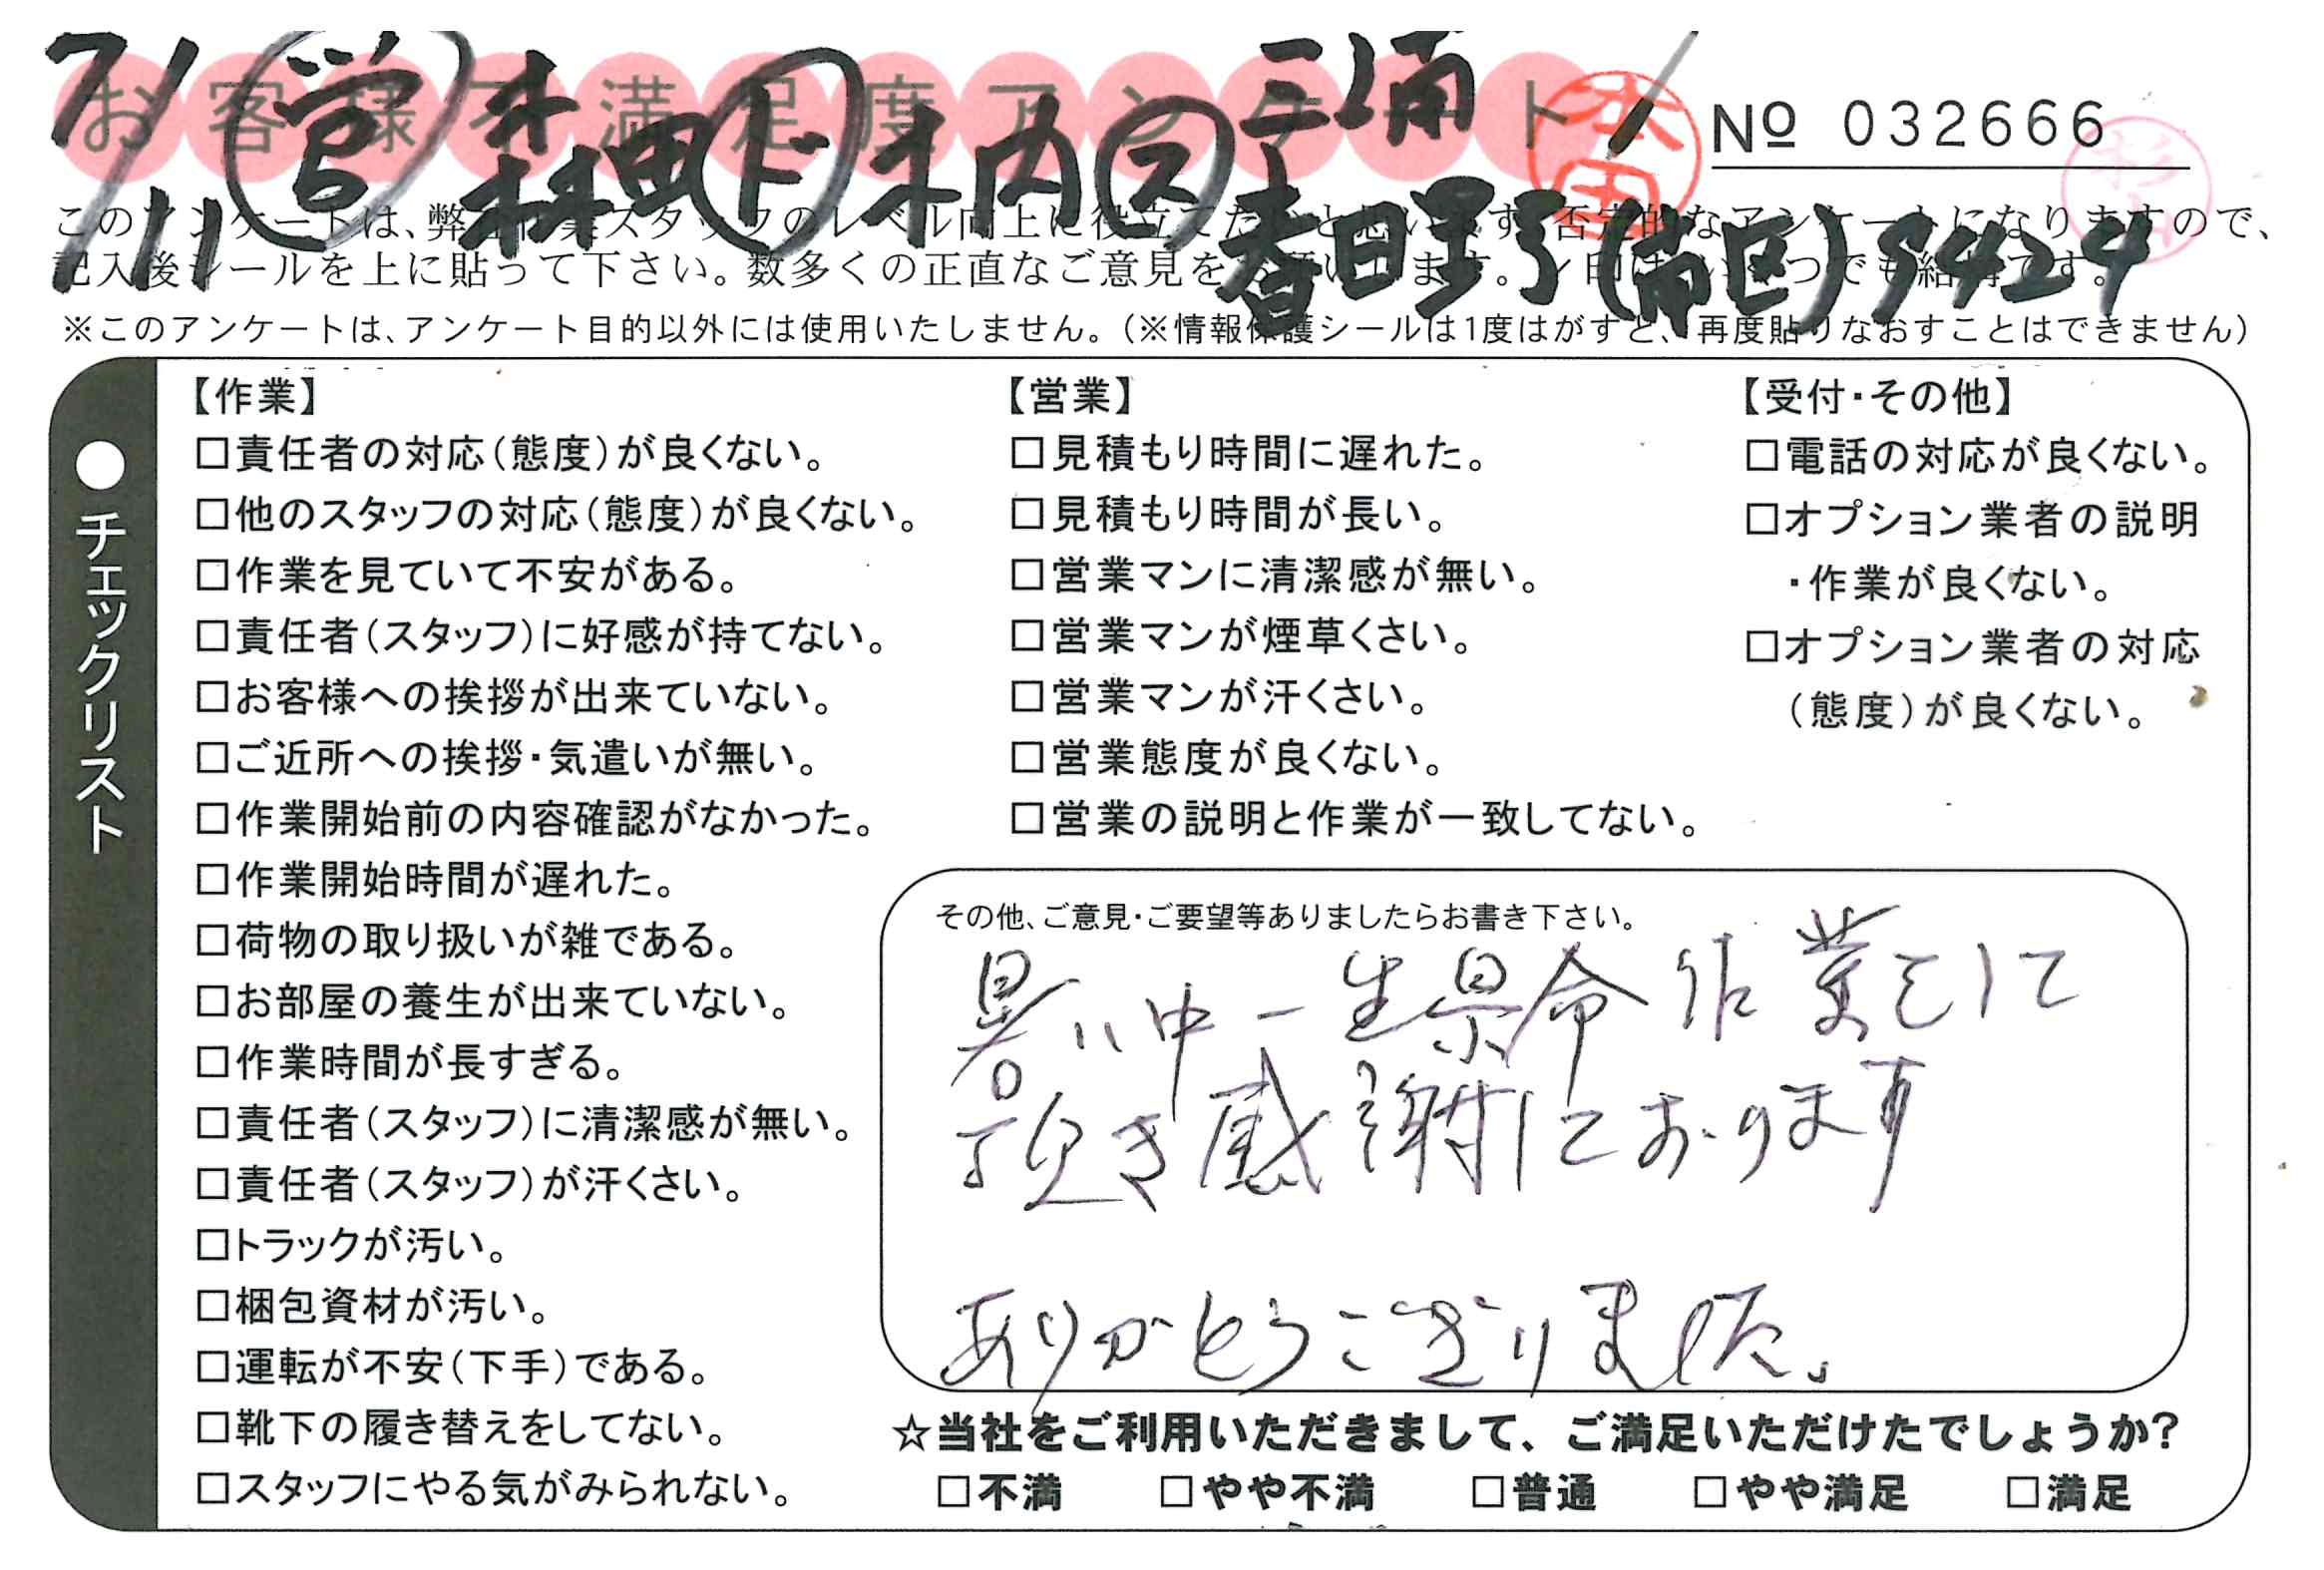 お客様不満足度アンケート
7/11 営 森田 ド 木内 ス 三浦
春日野(南区)S424
本田
№ 032666
このアンケートは、弊社作業スタッフのレベル向上に役立てたいと思います。否定的なアンケートになりますので、
記入後シールを上に貼って下さい。数多くの正直なご意見をお願いします。レ印はいくつでも結構です。
※このアンケートは、アンケート目的以外には使用いたしません。(※情報保護シールは1度はがすと、再度貼りなおすことはできません)
●チェックリスト
【作業】
□責任者の対応(態度)が良くない。
□他のスタッフの対応(態度)が良くない。
□作業を見ていて不安がある。
□責任者(スタッフ)に好感が持てない。
□お客様への挨拶が出来ていない。
□ご近所への挨拶・気遣いが無い。
□作業開始前の内容確認がなかった。
□作業開始時間が遅れた。
□荷物の取り扱いが雑である。
□お部屋の養生が出来ていない。
□作業時間が長すぎる。
□責任者(スタッフ)に清潔感が無い。
□責任者(スタッフ)が汗くさい。
□トラックが汚い。
□梱包資材が汚い。
□運転が不安(下手)である。
□靴下の履き替えをしてない。
□スタッフにやる気がみられない。
【営業】
□見積もり時間に遅れた。
□見積もり時間が長い。
□営業マンに清潔感が無い。
□営業マンが煙草くさい。
□営業マンが汗くさい。
□営業態度が良くない。
□営業の説明と作業が一致してない。
【受付・その他】
□電話の対応が良くない。
□オプション業者の説明
・作業が良くない。
□オプション業者の対応
(態度)が良くない。
その他、ご意見・ご要望等ありましたらお書き下さい。
暑い中一生懸命作業をして
頂き感謝しております
ありがとうございりました。
☆当社をご利用いただきまして、ご満足いただけたでしょうか?
□不満 □やや不満 □普通 □やや満足 □満足